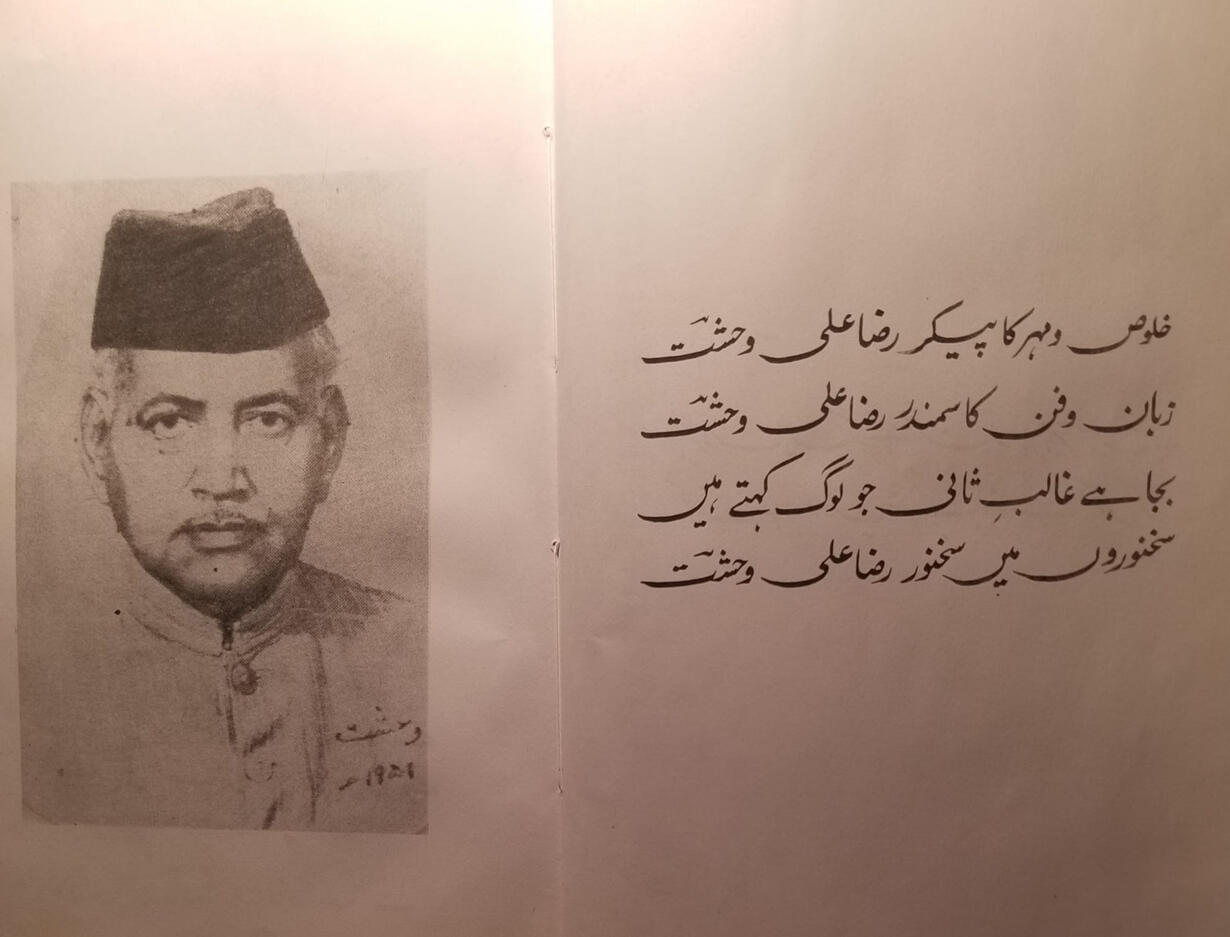 خلوص و مہر کا پیکر رضا علی وحشتؔ
زبان و فن کا سمندر رضا علی وحشتؔ
بجا ہے غالبِ ثانی جو لوگ کہتے ہیں
سخنوروں میں سخنور رضا علی وحشتؔ
وحشت
۱۹۵۱ء